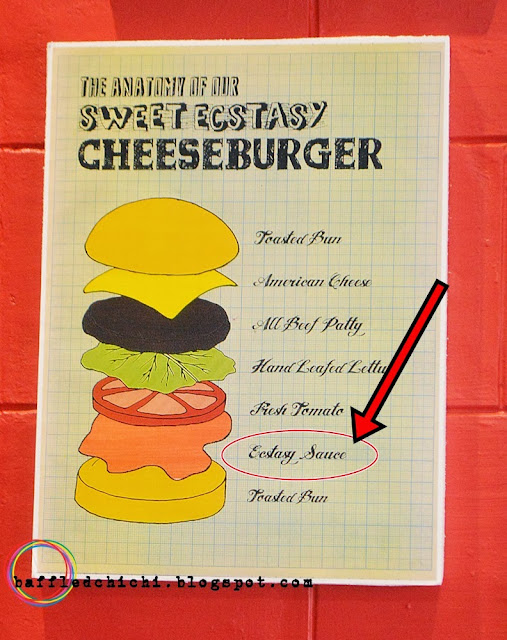 THE ANATOMY OF OUR
SWEET ECSTASY
CHEESEBURGER
Toasted Bun
American Cheese
All Beef Patty
Hand Leafed Lettu
Fresh Tomato
Ecstasy Sauce
Toasted Bun
baffledchichi.blogspot.com